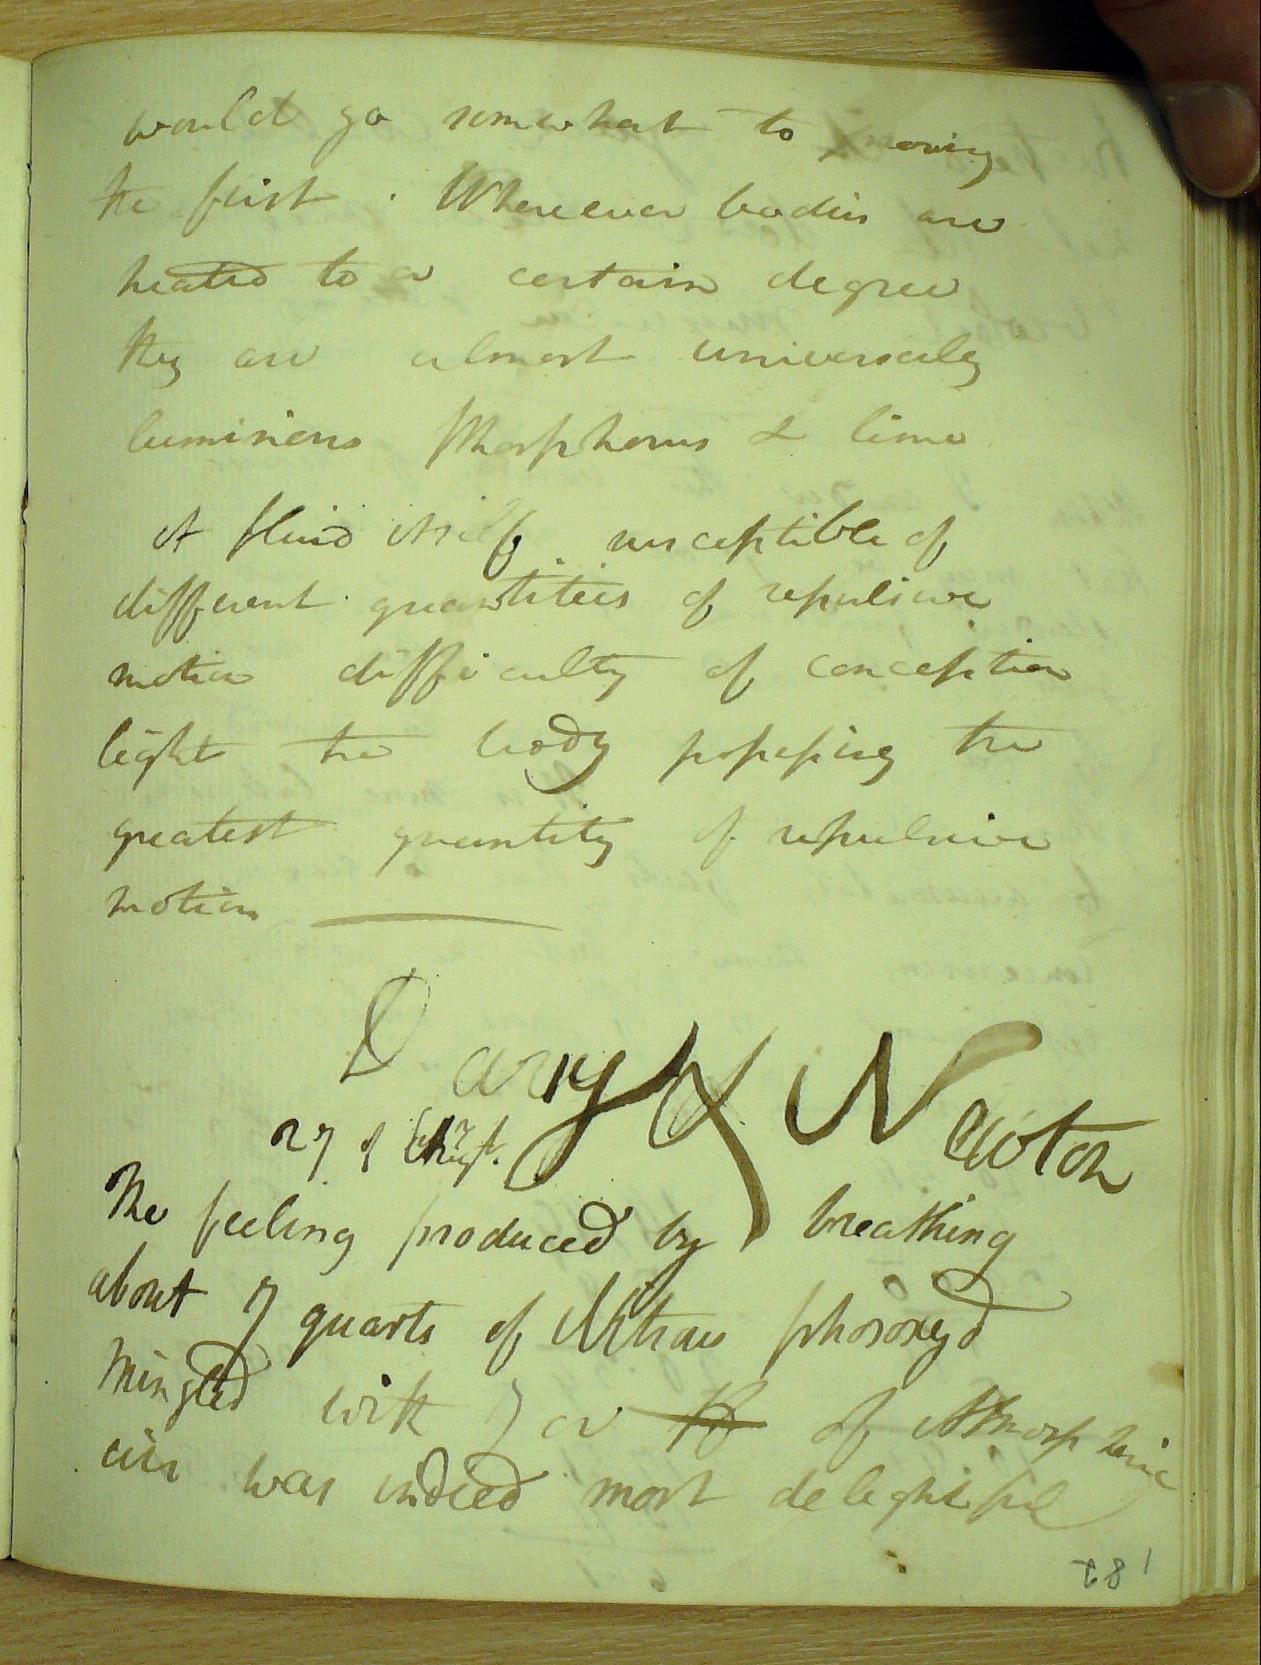 would go somewhat to proving
the first. Whereever bodies are
heated to a certain degree
they are almost universaly
luminiens Phosphorus & lime
A fluid itself. susceptible of
different quantities of repulsive
motion difficulty of conception
light the body possessing the
greatest quantity of repulsive
motion
Davy & Newton
27 of
The feeling produced by breathing
about 7 quarts of Nitrous phosoxyd
Mingled with 7 or of Atmospheric
air was indeed most delightful